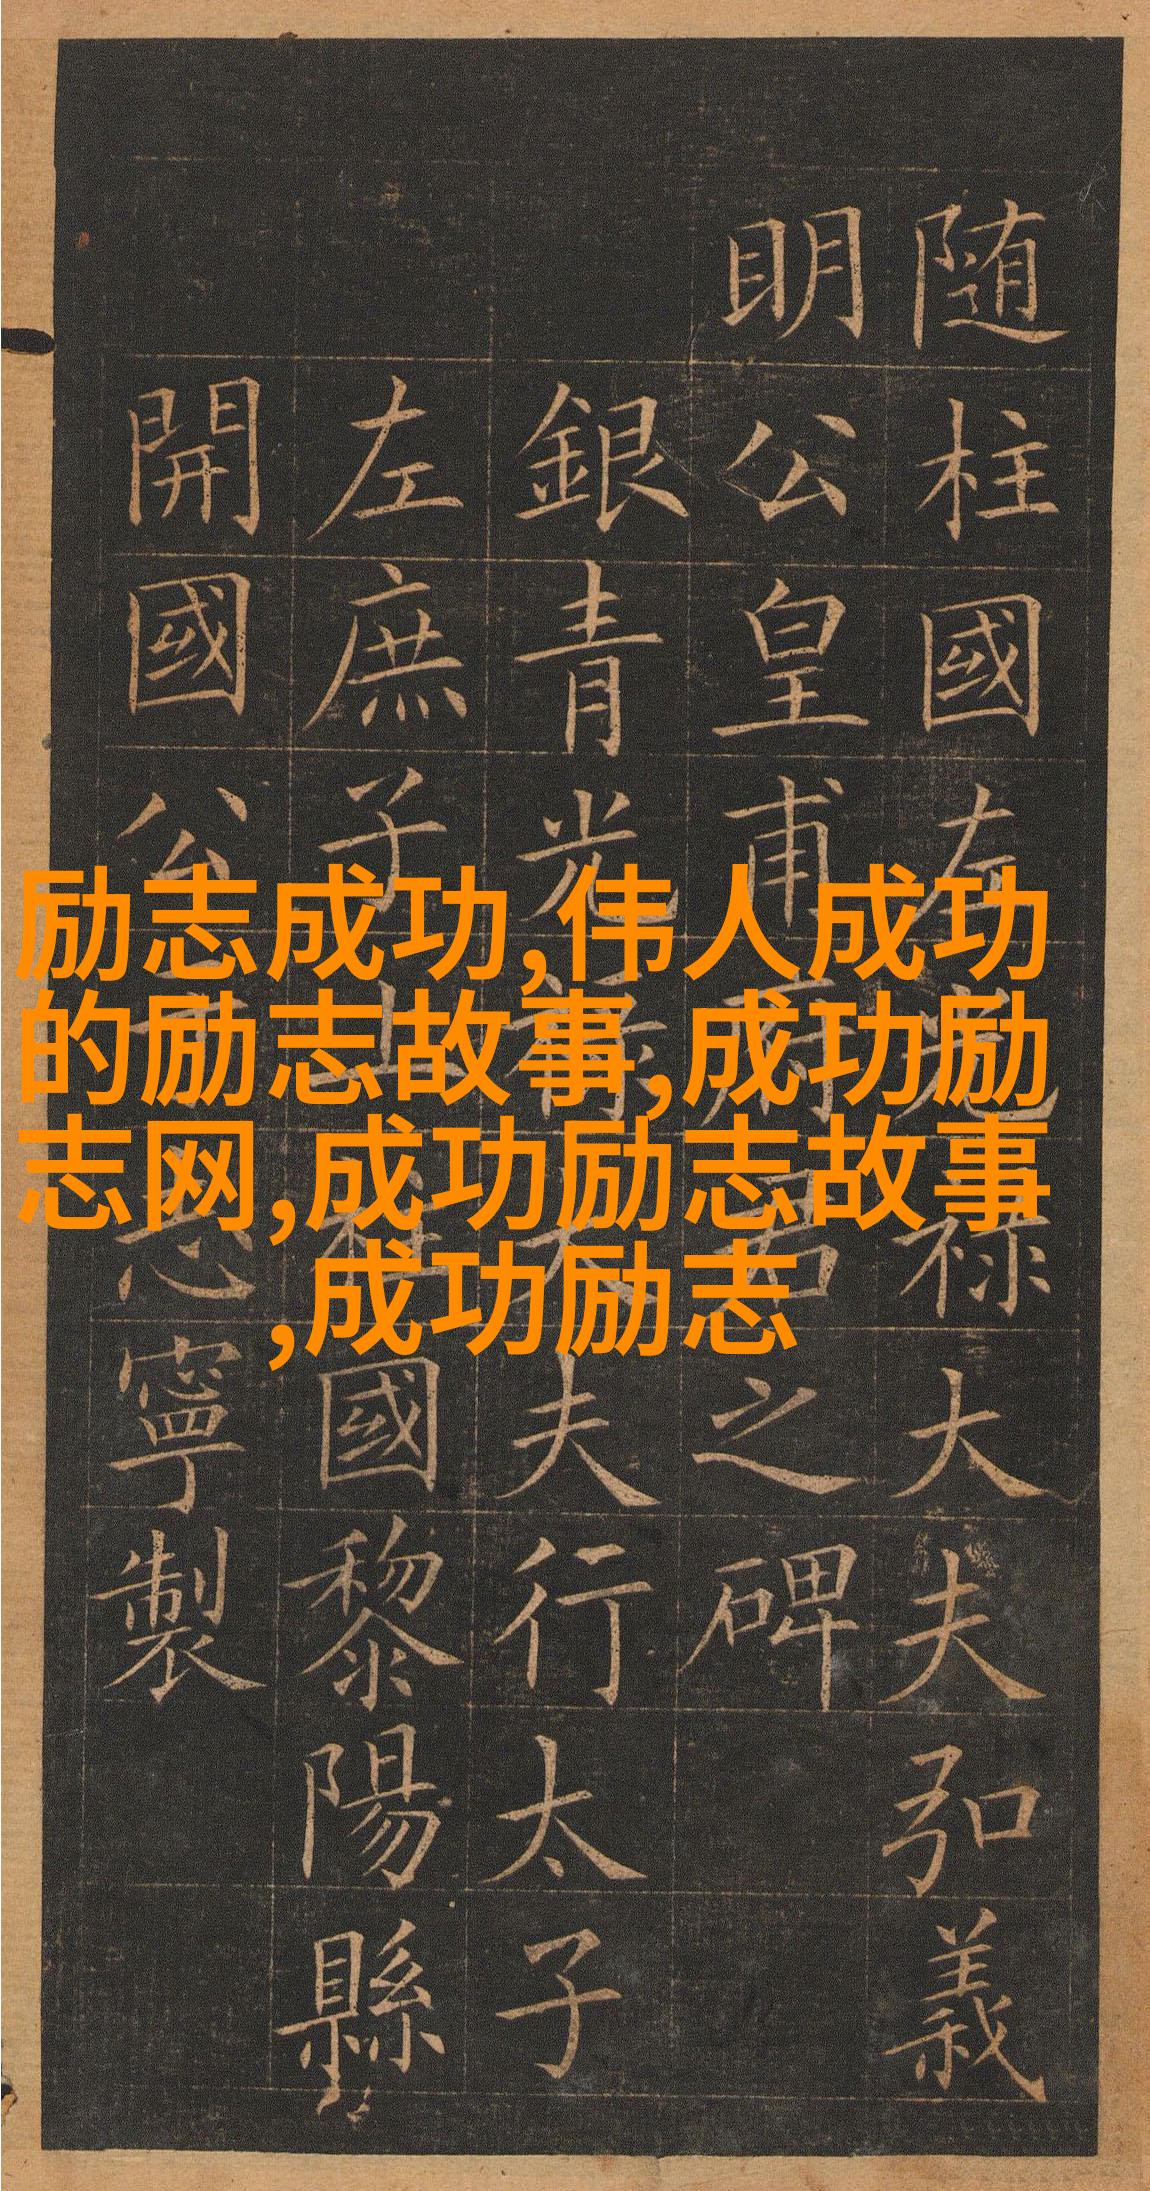 励志成功,伟人成功
的励志故事,成功励
志网,成功励志故事
,成功励志
随柱國左光禄大夫弘義
明公皇甫府君之碑
銀青光禄大夫行太子
左庶子上柱國黎陽縣
開國公于志寧製